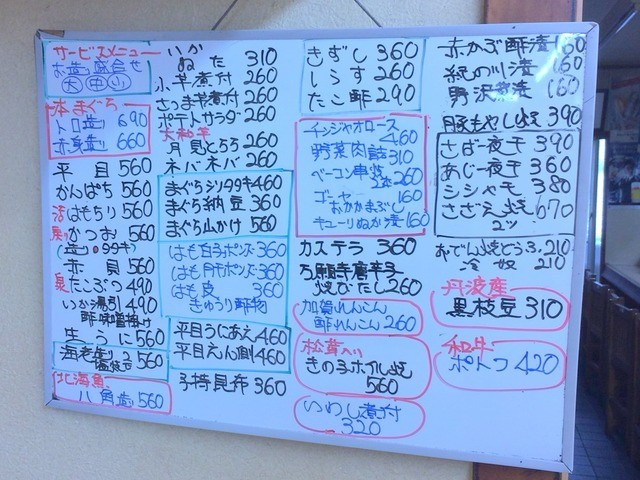 サービスメニュー
お造り盛合せ
大 中 小
本まぐろ
トロ造り 690
赤身造り 660
平目 560
かんぱち 560
活はもちり 560
戻りかつお 560
(造り・タタキ)
赤貝 560
泉たこぶつ 490
いか湯引 490
酢味噌掛け
生うに 560
海老造り2 560
塩焼き
北海魚
八角造り 560
いか
ぬた 310
小芋煮付 260
さつま芋煮付 260
ポテトサラダ 260
大和芋
月見とろろ 260
ネバネバ 260
まぐろシソタタキ 460
まぐろ納豆 360
まぐろ山かけ 560
はも白子ポンズ 360
はも肝ポンズ 360
はも皮 360
きゅうり酢物
平目うにあえ 460
平目えん側 460
子持昆布 360
きずし 360
しらす 260
たこ酢 290
チンジャオロース 460
野菜肉詰 310
ベーコン串焼 260
2本
ゴーヤー 160
おかかまぶし
キューリぬか漬 160
カステラ 360
万願寺唐辛子
焼びたし 260
加賀れんこん
酢れんこん 260
松茸入り
きの子ホイル焼
560
いわし煮付
320
赤かぶ酢漬 160
紀の川漬 160
野沢菜漬 160
豚もやし焼 390
さば一夜干 390
あじ一夜干 360
シシャモ 380
さざえ焼 670
2ツ
おでん焼とうふ 210
冷奴 210
丹波産
黒枝豆 310
和牛
ポトフ 420